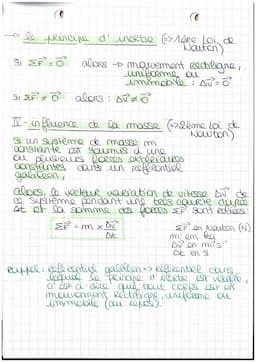 → le principe d'inertie (=> 1ère loi de
Newton)
Si ΣF⃗ = 0⃗ alors → mouvement rectiligne,
uniforme ou
immobile : Δv⃗ = 0⃗
Si ΣF⃗ ≠ 0⃗ alors : Δv⃗ ≠ 0⃗
IV - influence de la masse (=> 2ème loi de
Newton)
Si un système de masse m
constante est soumis à une
ou plusieurs forces extérieures
constantes dans un référentiel
galiléen ;
alors, le vecteur variation de vitesse Δv⃗ de
ce système pendant une très courte durée
Δt et la somme des forces ΣF⃗ sont reliées :
ΣF⃗ = m × Δv⃗ / Δt
ΣF⃗ en Newton (N)
m en kg
Δv⃗ en m·s⁻¹
Δt en s
Rappel : référentiel galiléen => référentiel dans
lequel le principe d'inertie est vérifié,
c'est-à-dire que tout corps est en
mouvement rectiligne, uniforme ou
immobile (au repos).